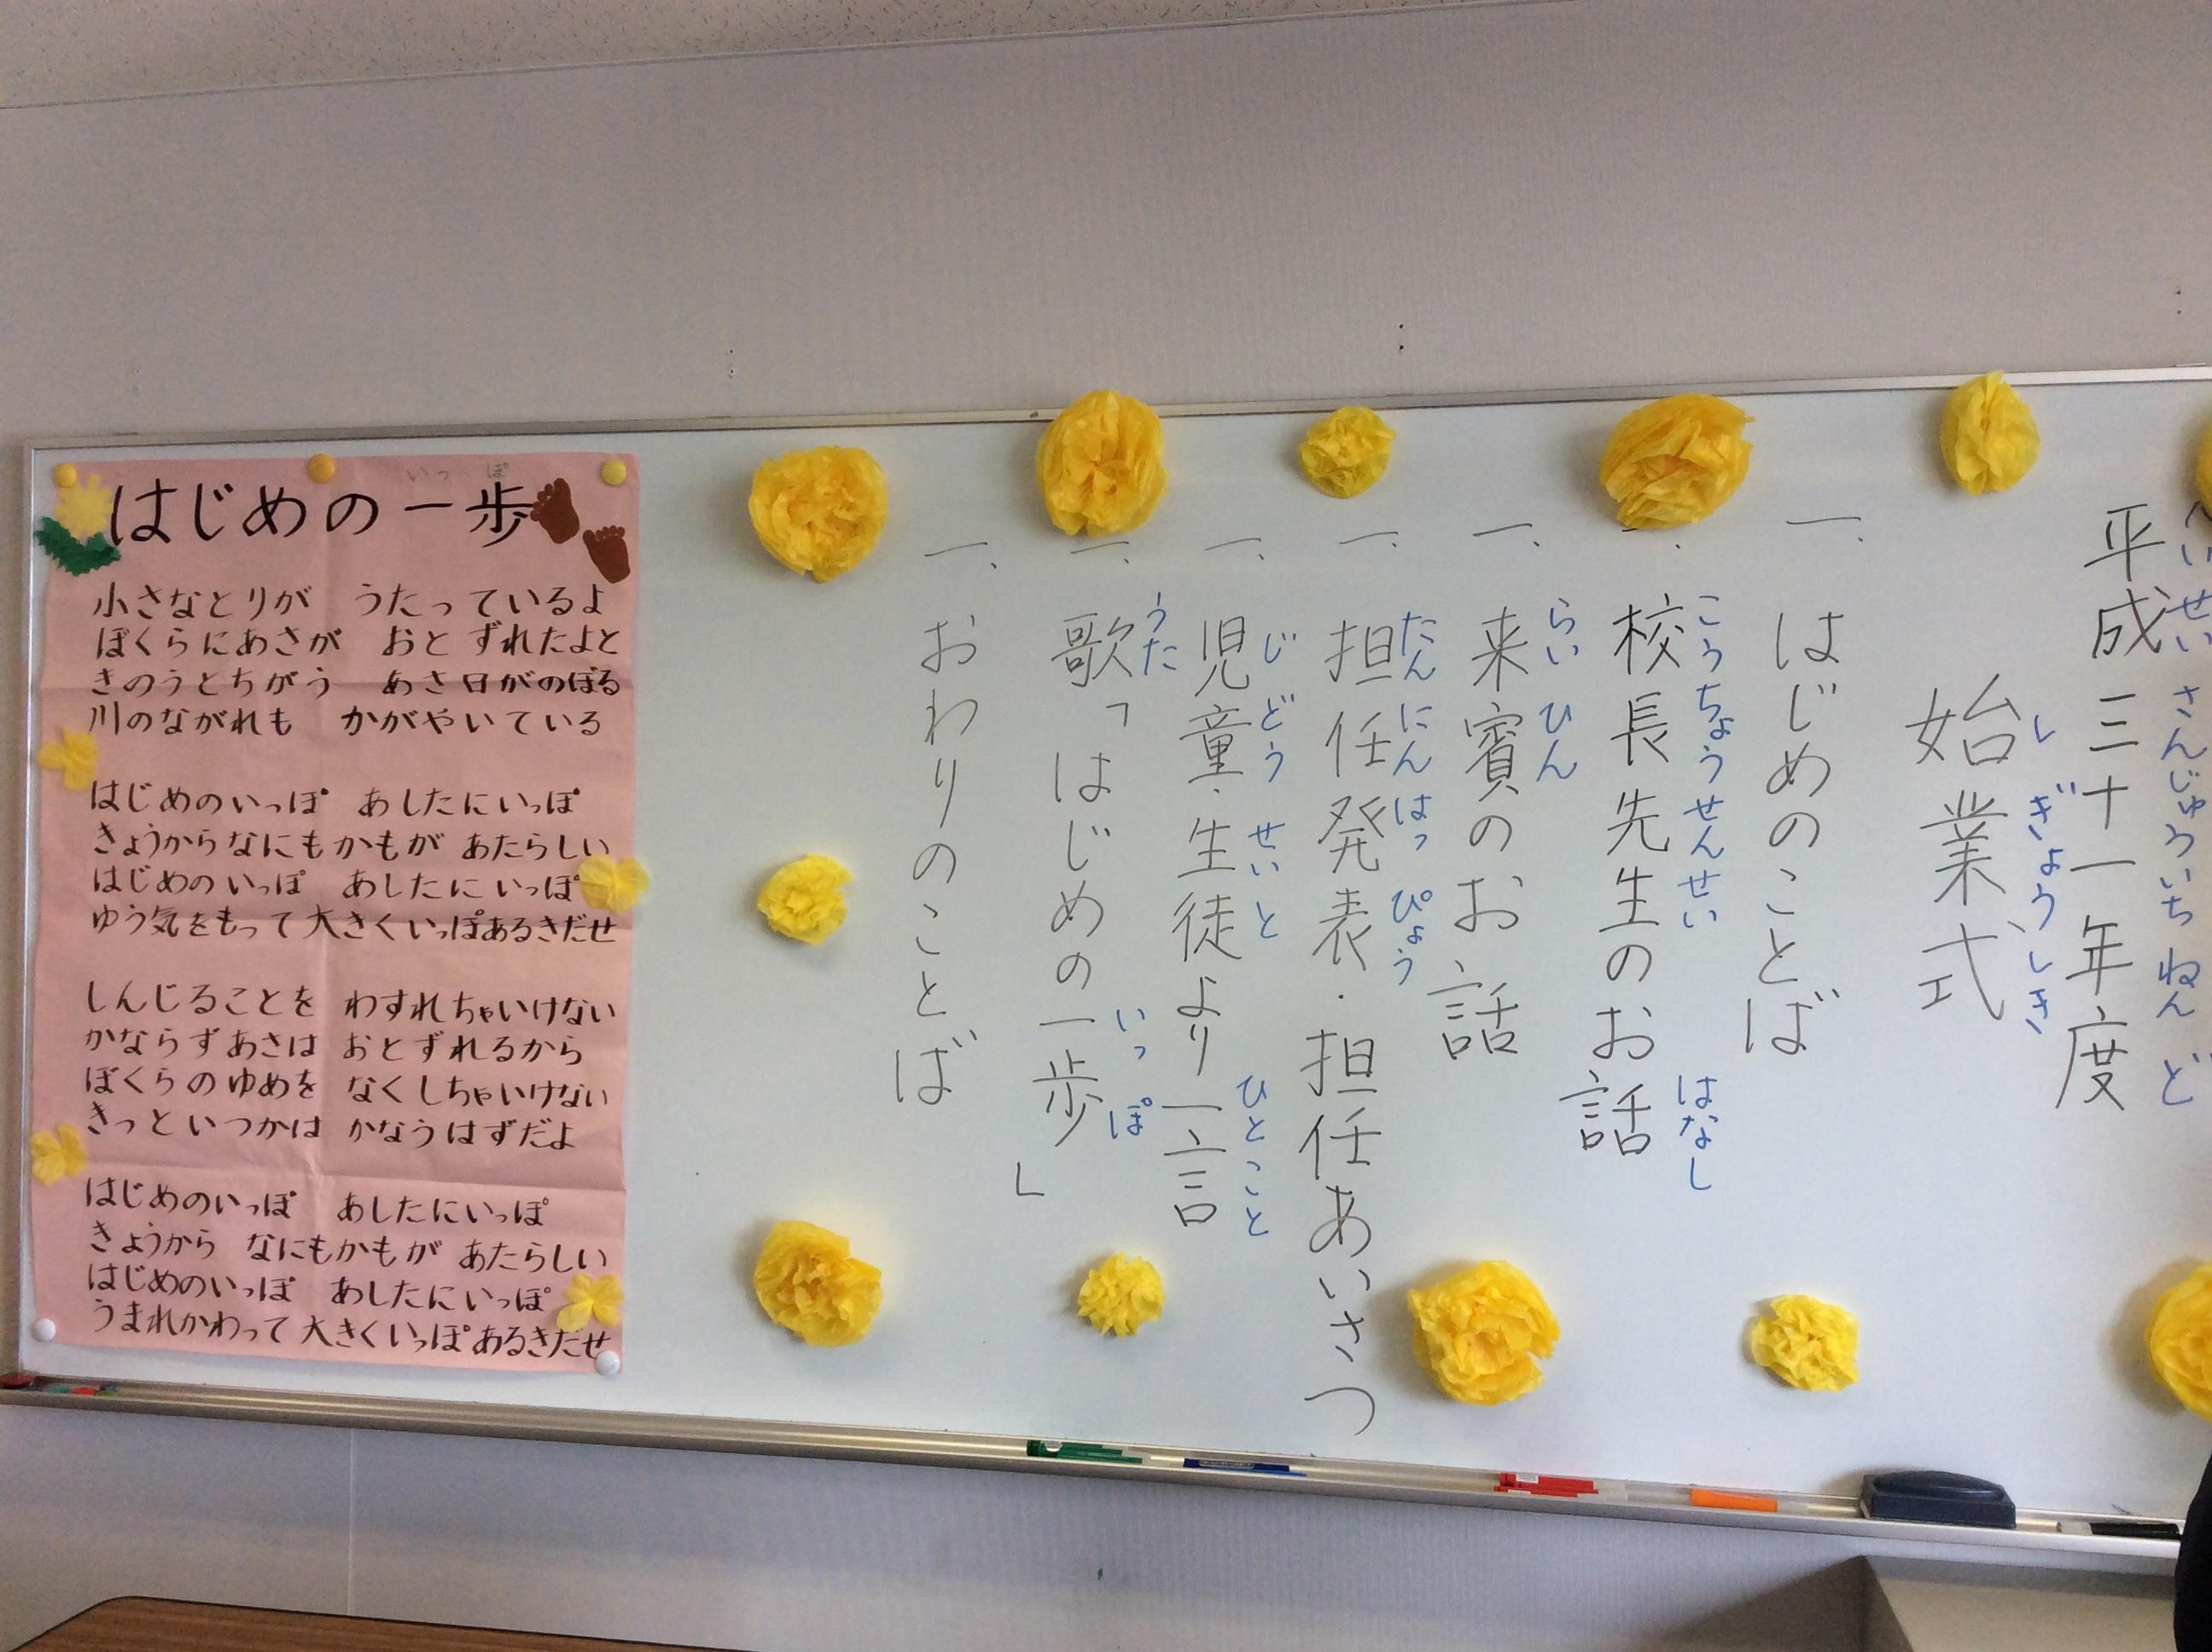 へいせいさんじゅういちねんど
平成三十一年度
しぎょうしき
始業式
一、はじめのことば
こうちょうせんせい はなし
一、校長先生のお話
らいひん
一、来賓のお話
たんにんはっぴょう
一、担任発表・担任あいさつ
じどう せいと ひとこと
一、児童・生徒より一言
うた いっぽ
一、歌「はじめの一歩」
一、おわりのことば
いっぽ
はじめの一歩
小さなとりが うたっているよ
ぼくらにあさが おとずれたよと
きのうとちがう あさ日がのぼる
川のながれも かがやいている
はじめのいっぽ あしたにいっぽ
きょうからなにもかもが あたらしい
はじめのいっぽ あしたにいっぽ
ゆう気をもって大きくいっぽあるきだせ
しんじることを わすれちゃいけない
かならずあさは おとずれるから
ぼくらのゆめを なくしちゃいけない
きっといつかは かなうはずだよ
はじめのいっぽ あしたにいっぽ
きょうから なにもかもが あたらしい
はじめのいっぽ あしたにいっぽ
うまれかわって大きくいっぽあるきだせ